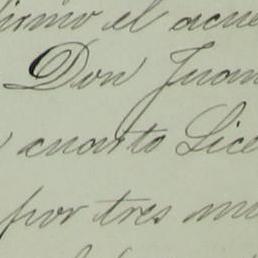 firmo el acue
Don Juan
cuarto Lice
por tres